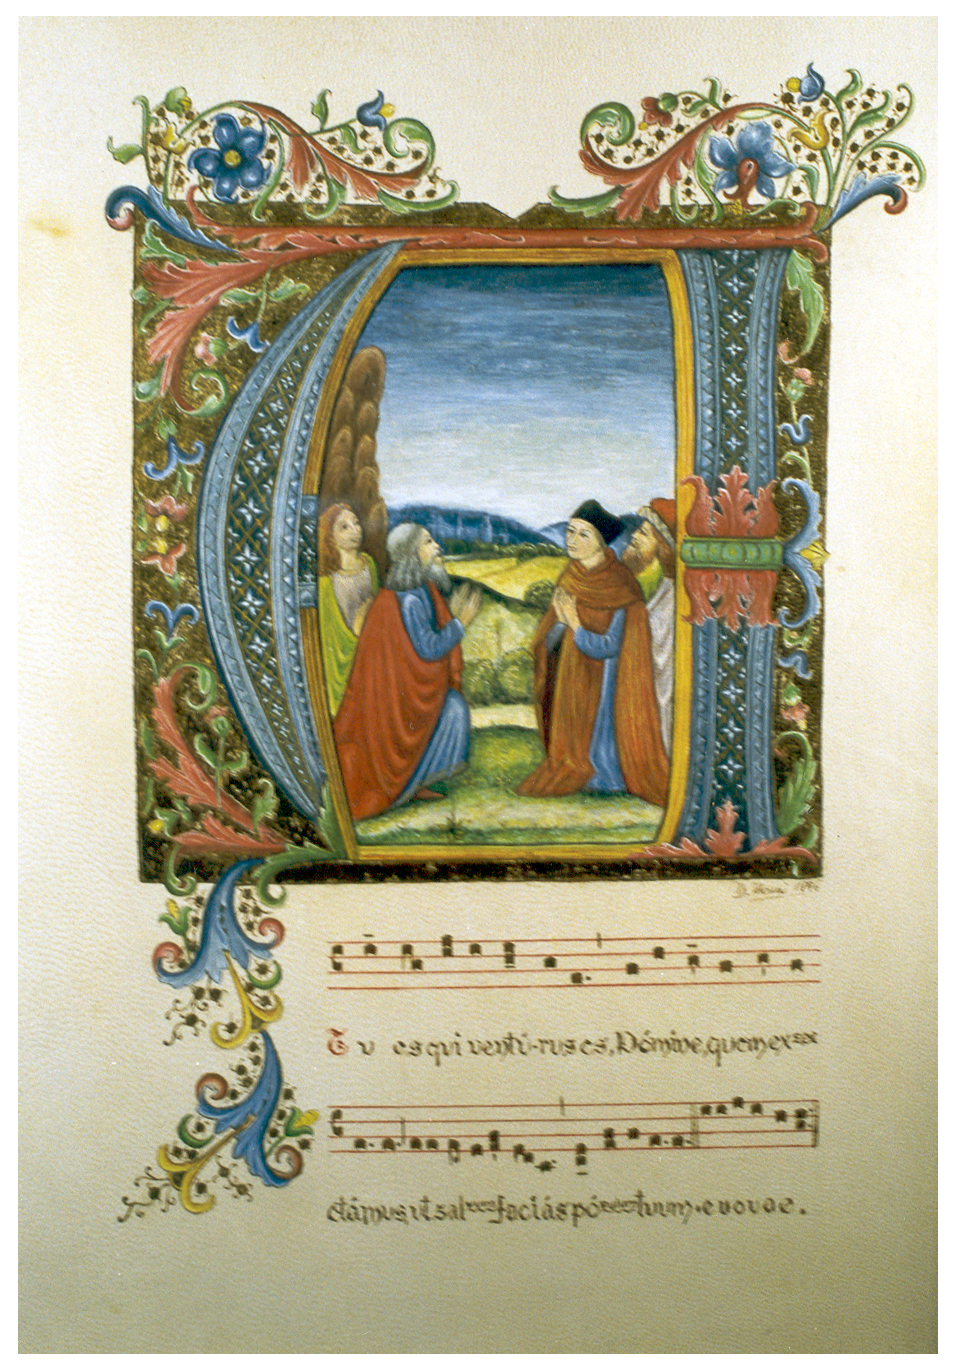 Tu es qui ventú-rus es, Dómine, quem exspe
ctámus, ut salvum faciás pópulum tuum. euouae.